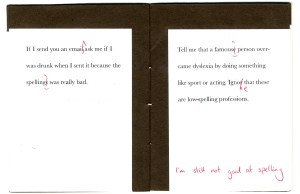 If I send you an email ask me if I
was drunk when I sent it because the
spelling was really bad.
Tell me that a famous person over-
came dyslexia by doing something
like sport or acting. Ignore that these
are low-spelling professions.
I'm still not good at spelling